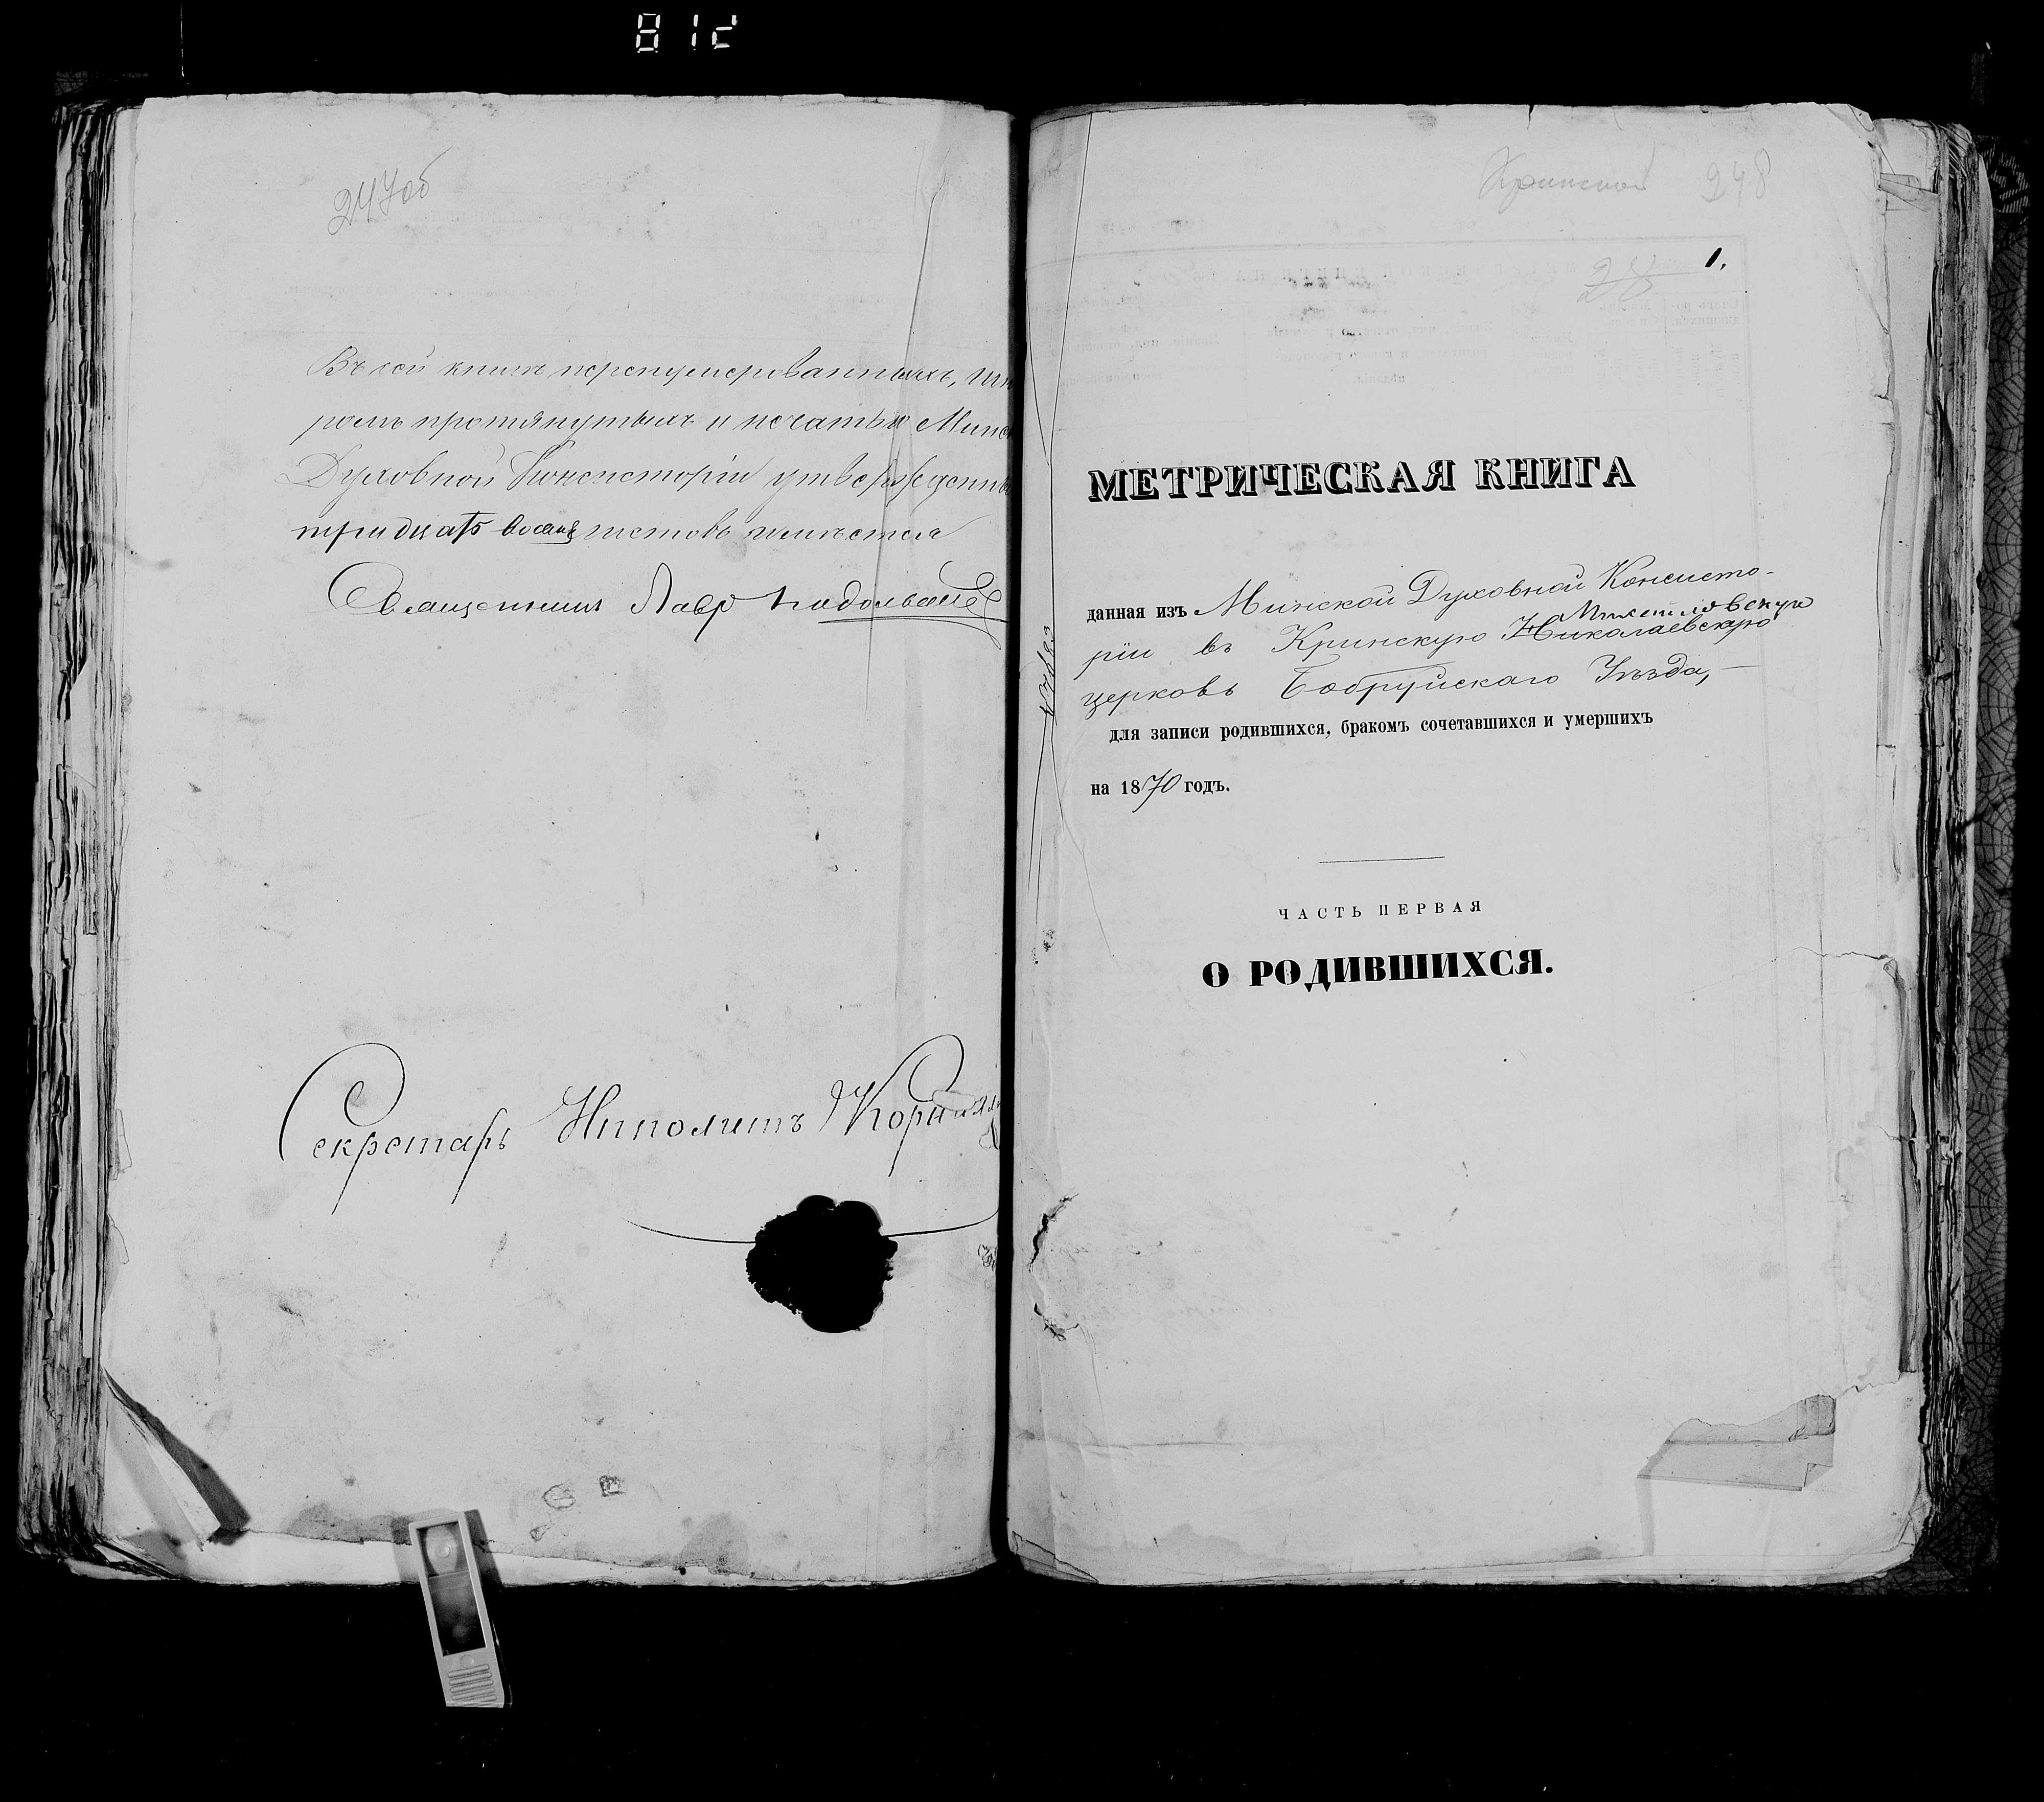 812
247об
Въ сей книгѣ перенумерованныхъ, шну
ромъ протянутыхъ и печатью Минск
Духовной Консисторіи утвержденны
тридцать восемь листовъ имѣется
Священникъ Лавр
Секретарь Ипполитъ
Кринской 248
28
1.
МЕТРИЧЕСКАЯ КНИГА
данная изъ Минской Духовной Консисто-
Михайловскую
ріи въ Кринскую Николаевскую
церковь Бобруйскаго Уѣзда,
для записи родившихся, бракомъ сочетавшихся и умершихъ
на 1870 годъ.
ЧАСТЬ ПЕРВАЯ
О РОДИВШИХСЯ.